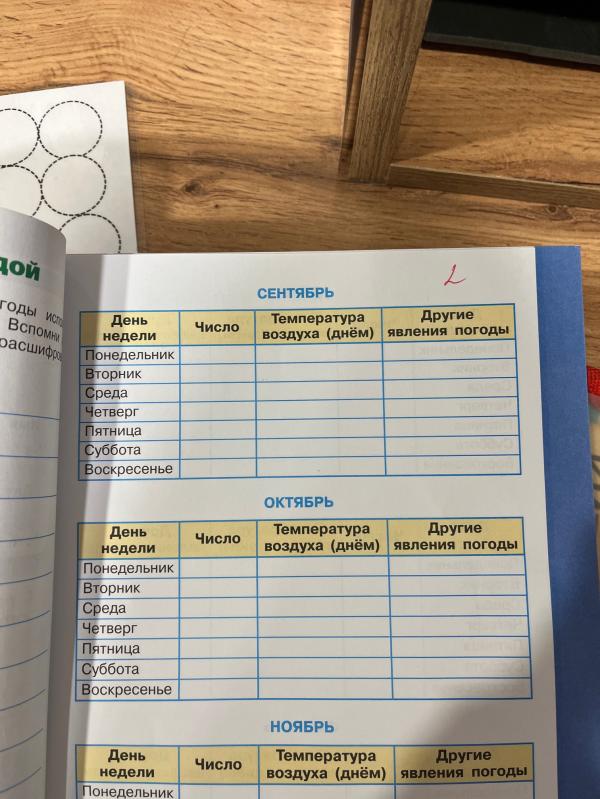 дой
годы испо
Вспомни
расшифро
2
СЕНТЯБРЬ
День недели Число Температура воздуха (днём) Другие явления погоды
Понедельник
Вторник
Среда
Четверг
Пятница
Суббота
Воскресенье
ОКТЯБРЬ
День недели Число Температура воздуха (днём) Другие явления погоды
Понедельник
Вторник
Среда
Четверг
Пятница
Суббота
Воскресенье
НОЯБРЬ
День недели Число Температура воздуха (днём) Другие явления погоды
Понедельник